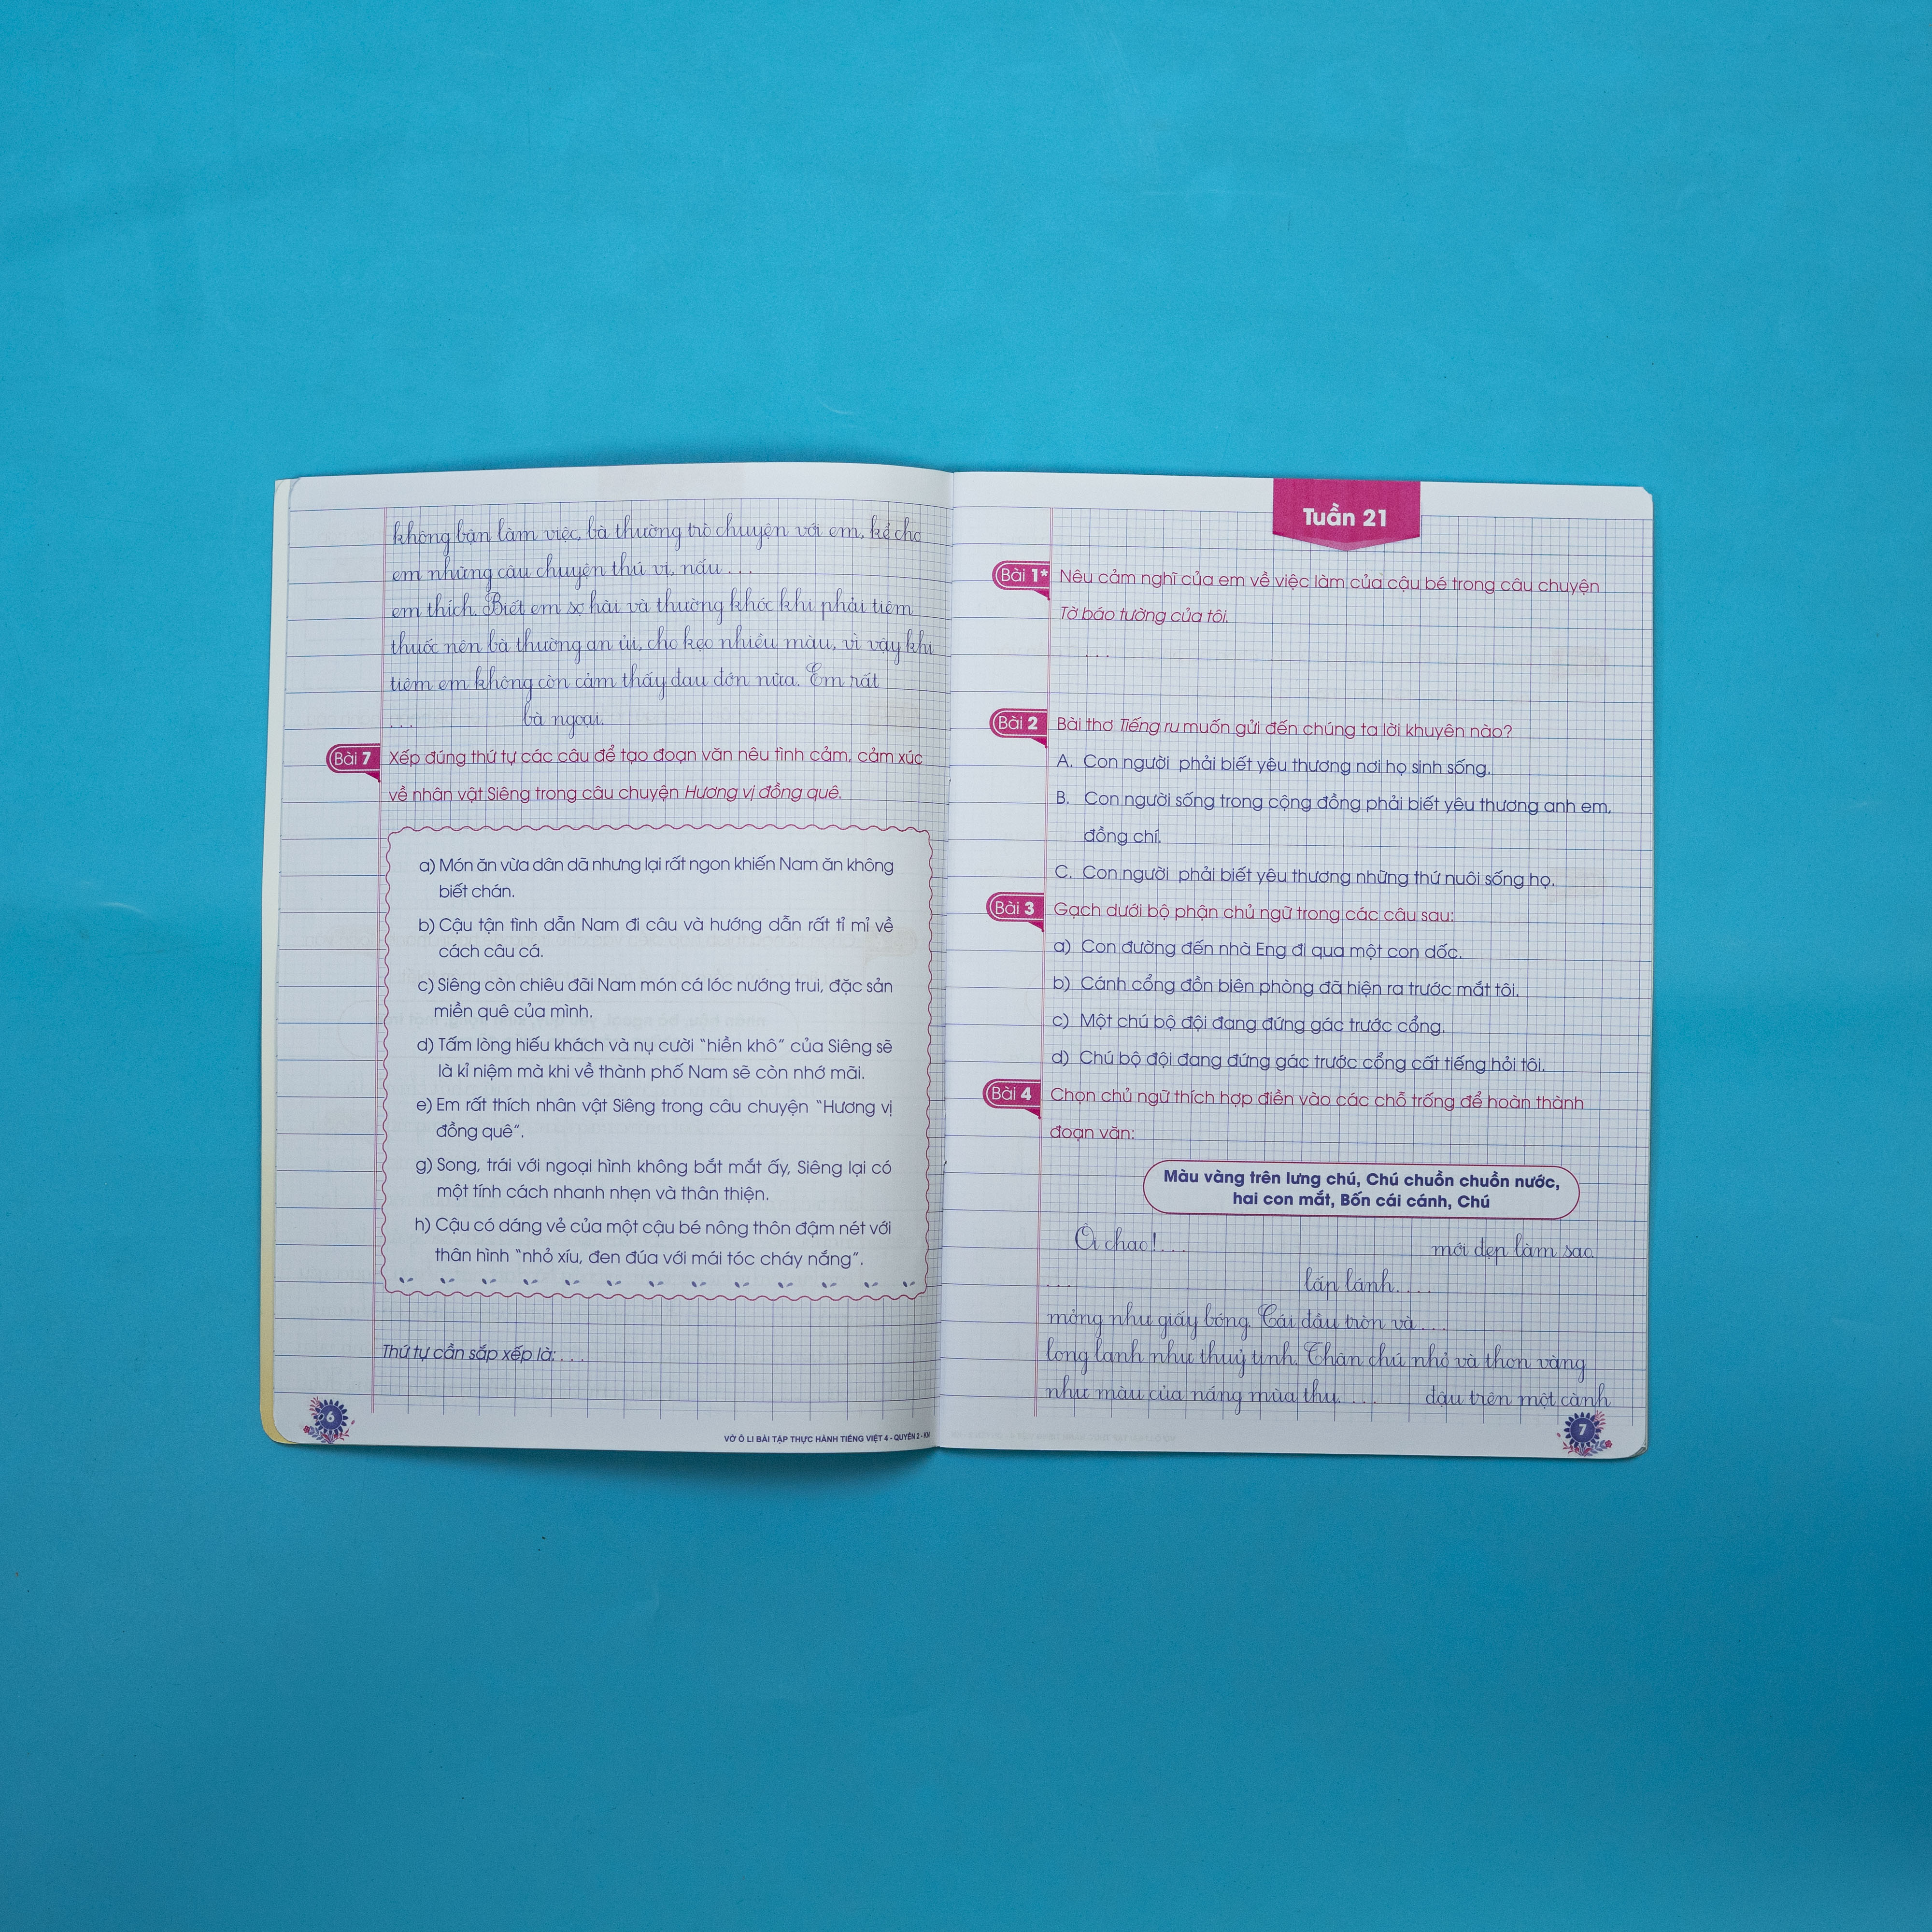 không bận làm việc, bà thường trò chuyện với em, kể cho
em những câu chuyện thú vị, nấu ...
em thích. Biết em sợ hãi và thường khóc khi phải tiêm
thuốc nên bà thường an ủi, cho kẹo nhiều màu, vì vậy khi
tiêm em không còn cảm thấy đau đớn nữa. Em rất
... bà ngoại.
Bài 7 Xếp đúng thứ tự các câu để tạo đoạn văn nêu tình cảm, cảm xúc
về nhân vật Siêng trong câu chuyện Hương vị đồng quê.
a) Món ăn vừa dân dã nhưng lại rất ngon khiến Nam ăn không
biết chán.
b) Cậu tận tình dẫn Nam đi câu và hướng dẫn rất tỉ mỉ về
cách câu cá.
c) Siêng còn chiêu đãi Nam món cá lóc nướng trui, đặc sản
miền quê của mình.
d) Tấm lòng hiếu khách và nụ cười "hiền khô" của Siêng sẽ
là kỉ niệm mà khi về thành phố Nam sẽ còn nhớ mãi.
e) Em rất thích nhân vật Siêng trong câu chuyện "Hương vị
đồng quê".
g) Song, trái với ngoại hình không bắt mắt ấy, Siêng lại có
một tính cách nhanh nhẹn và thân thiện.
h) Cậu có dáng vẻ của một cậu bé nông thôn đậm nét với
thân hình "nhỏ xíu, đen đúa với mái tóc cháy nắng".
Thứ tự cần sắp xếp là: ...
6
VỞ Ô LI BÀI TẬP THỰC HÀNH TIẾNG VIỆT 4 - QUYỂN 2 - KN
Tuần 21
Bài 1* Nêu cảm nghĩ của em về việc làm của cậu bé trong câu chuyện
Tờ báo tường của tôi.
...
Bài 2 Bài thơ Tiếng ru muốn gửi đến chúng ta lời khuyên nào?
A. Con người phải biết yêu thương nơi họ sinh sống.
B. Con người sống trong cộng đồng phải biết yêu thương anh em,
đồng chí.
C. Con người phải biết yêu thương những thứ nuôi sống họ.
Bài 3 Gạch dưới bộ phận chủ ngữ trong các câu sau:
a) Con đường đến nhà Eng đi qua một con dốc.
b) Cánh cổng đồn biên phòng đã hiện ra trước mắt tôi.
c) Một chú bộ đội đang đứng gác trước cổng.
d) Chú bộ đội đang đứng gác trước cổng cất tiếng hỏi tôi.
Bài 4 Chọn chủ ngữ thích hợp điền vào các chỗ trống để hoàn thành
đoạn văn:
Màu vàng trên lưng chú, Chú chuồn chuồn nước,
hai con mắt, Bốn cái cánh, Chú
Ôi chao! ... mới đẹp làm sao.
... lấp lánh. ...
mỏng như giấy bóng. Cái đầu tròn và ...
long lanh như thuỷ tinh. Thân chú nhỏ và thon vàng
như màu của nắng mùa thu. ... đậu trên một cành
7